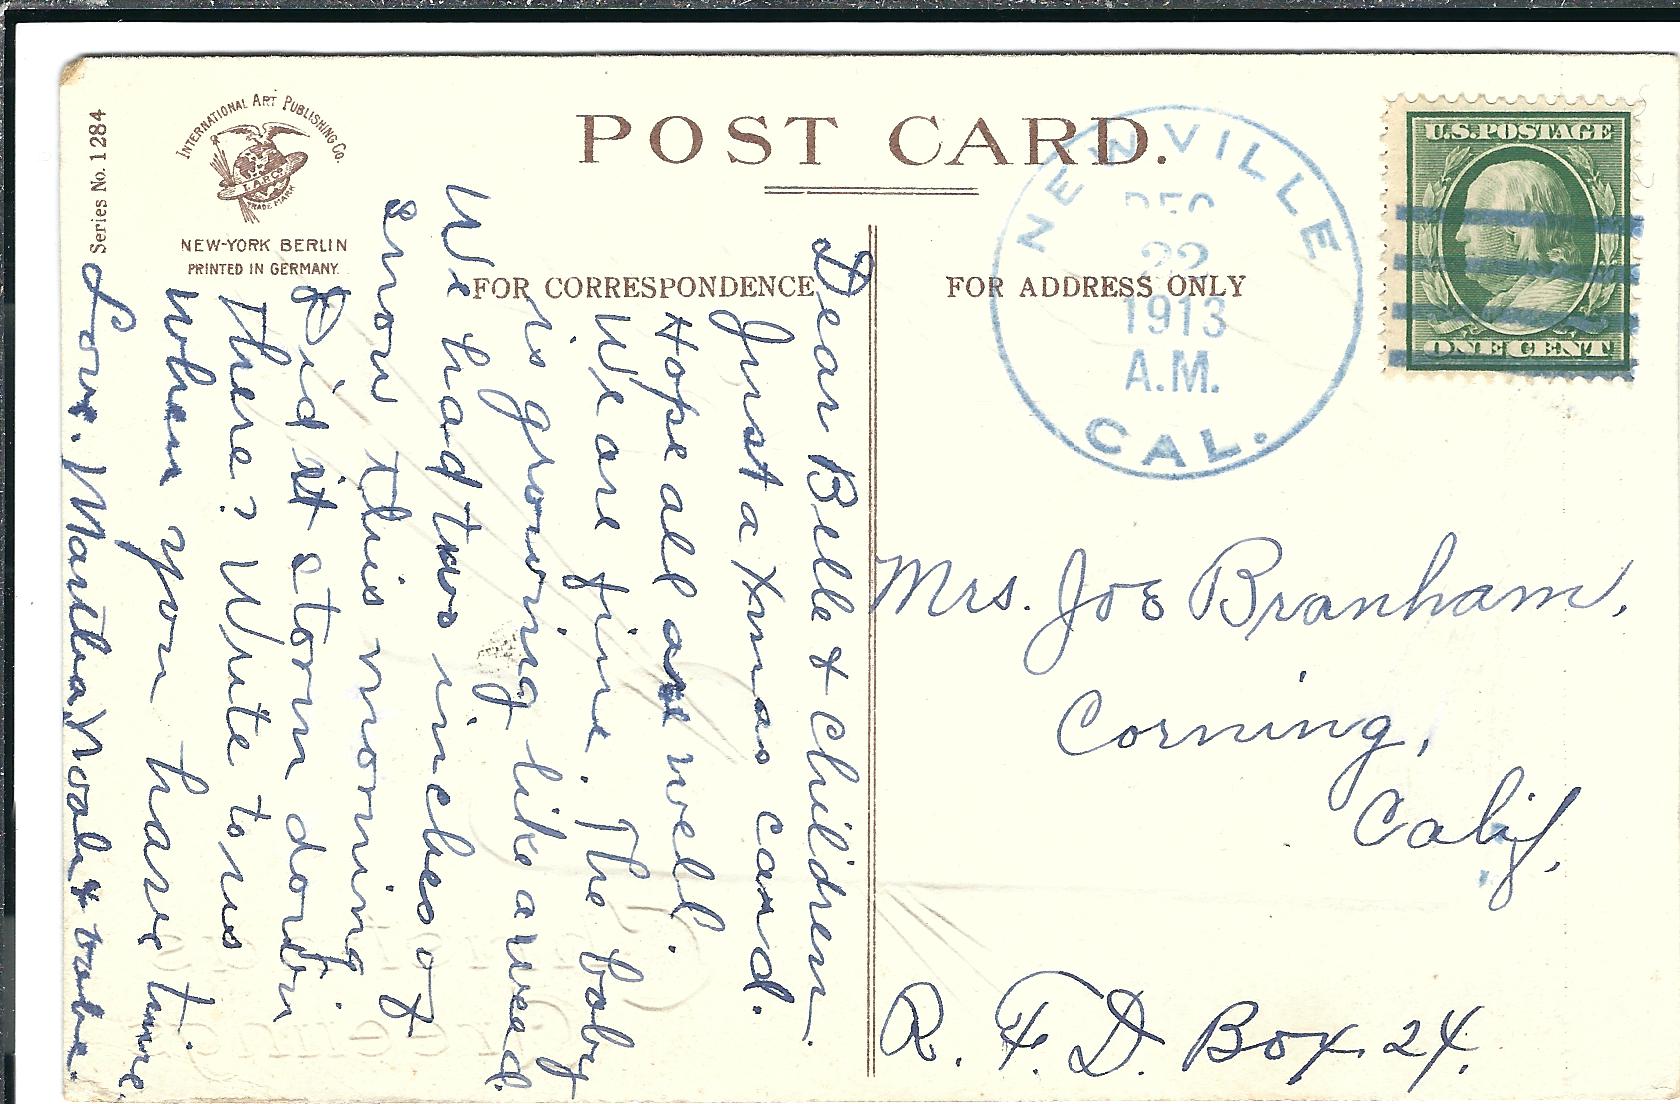 Series No. 1284
INTERNATIONAL ART PUBLISHING CO.
I.A.P.Co.
TRADE MARK
NEW-YORK BERLIN
PRINTED IN GERMANY.
POST CARD.
FOR CORRESPONDENCE
FOR ADDRESS ONLY
NEWVILLE
DEC
22
1913
A.M.
CAL.
U.S. POSTAGE
ONE CENT
Dear Belle & children.
Just a Xmas card.
Hope all are well.
We are fine. The baby
is growing like a weed.
We had two inches of
snow this morning.
Did it storm down
there? Write to us
when you have time.
Love. Martha, & babe.
Mrs. Joe Branham,
Corning,
Calif.
R. F. D. Box 24.
Christmas
Greetings